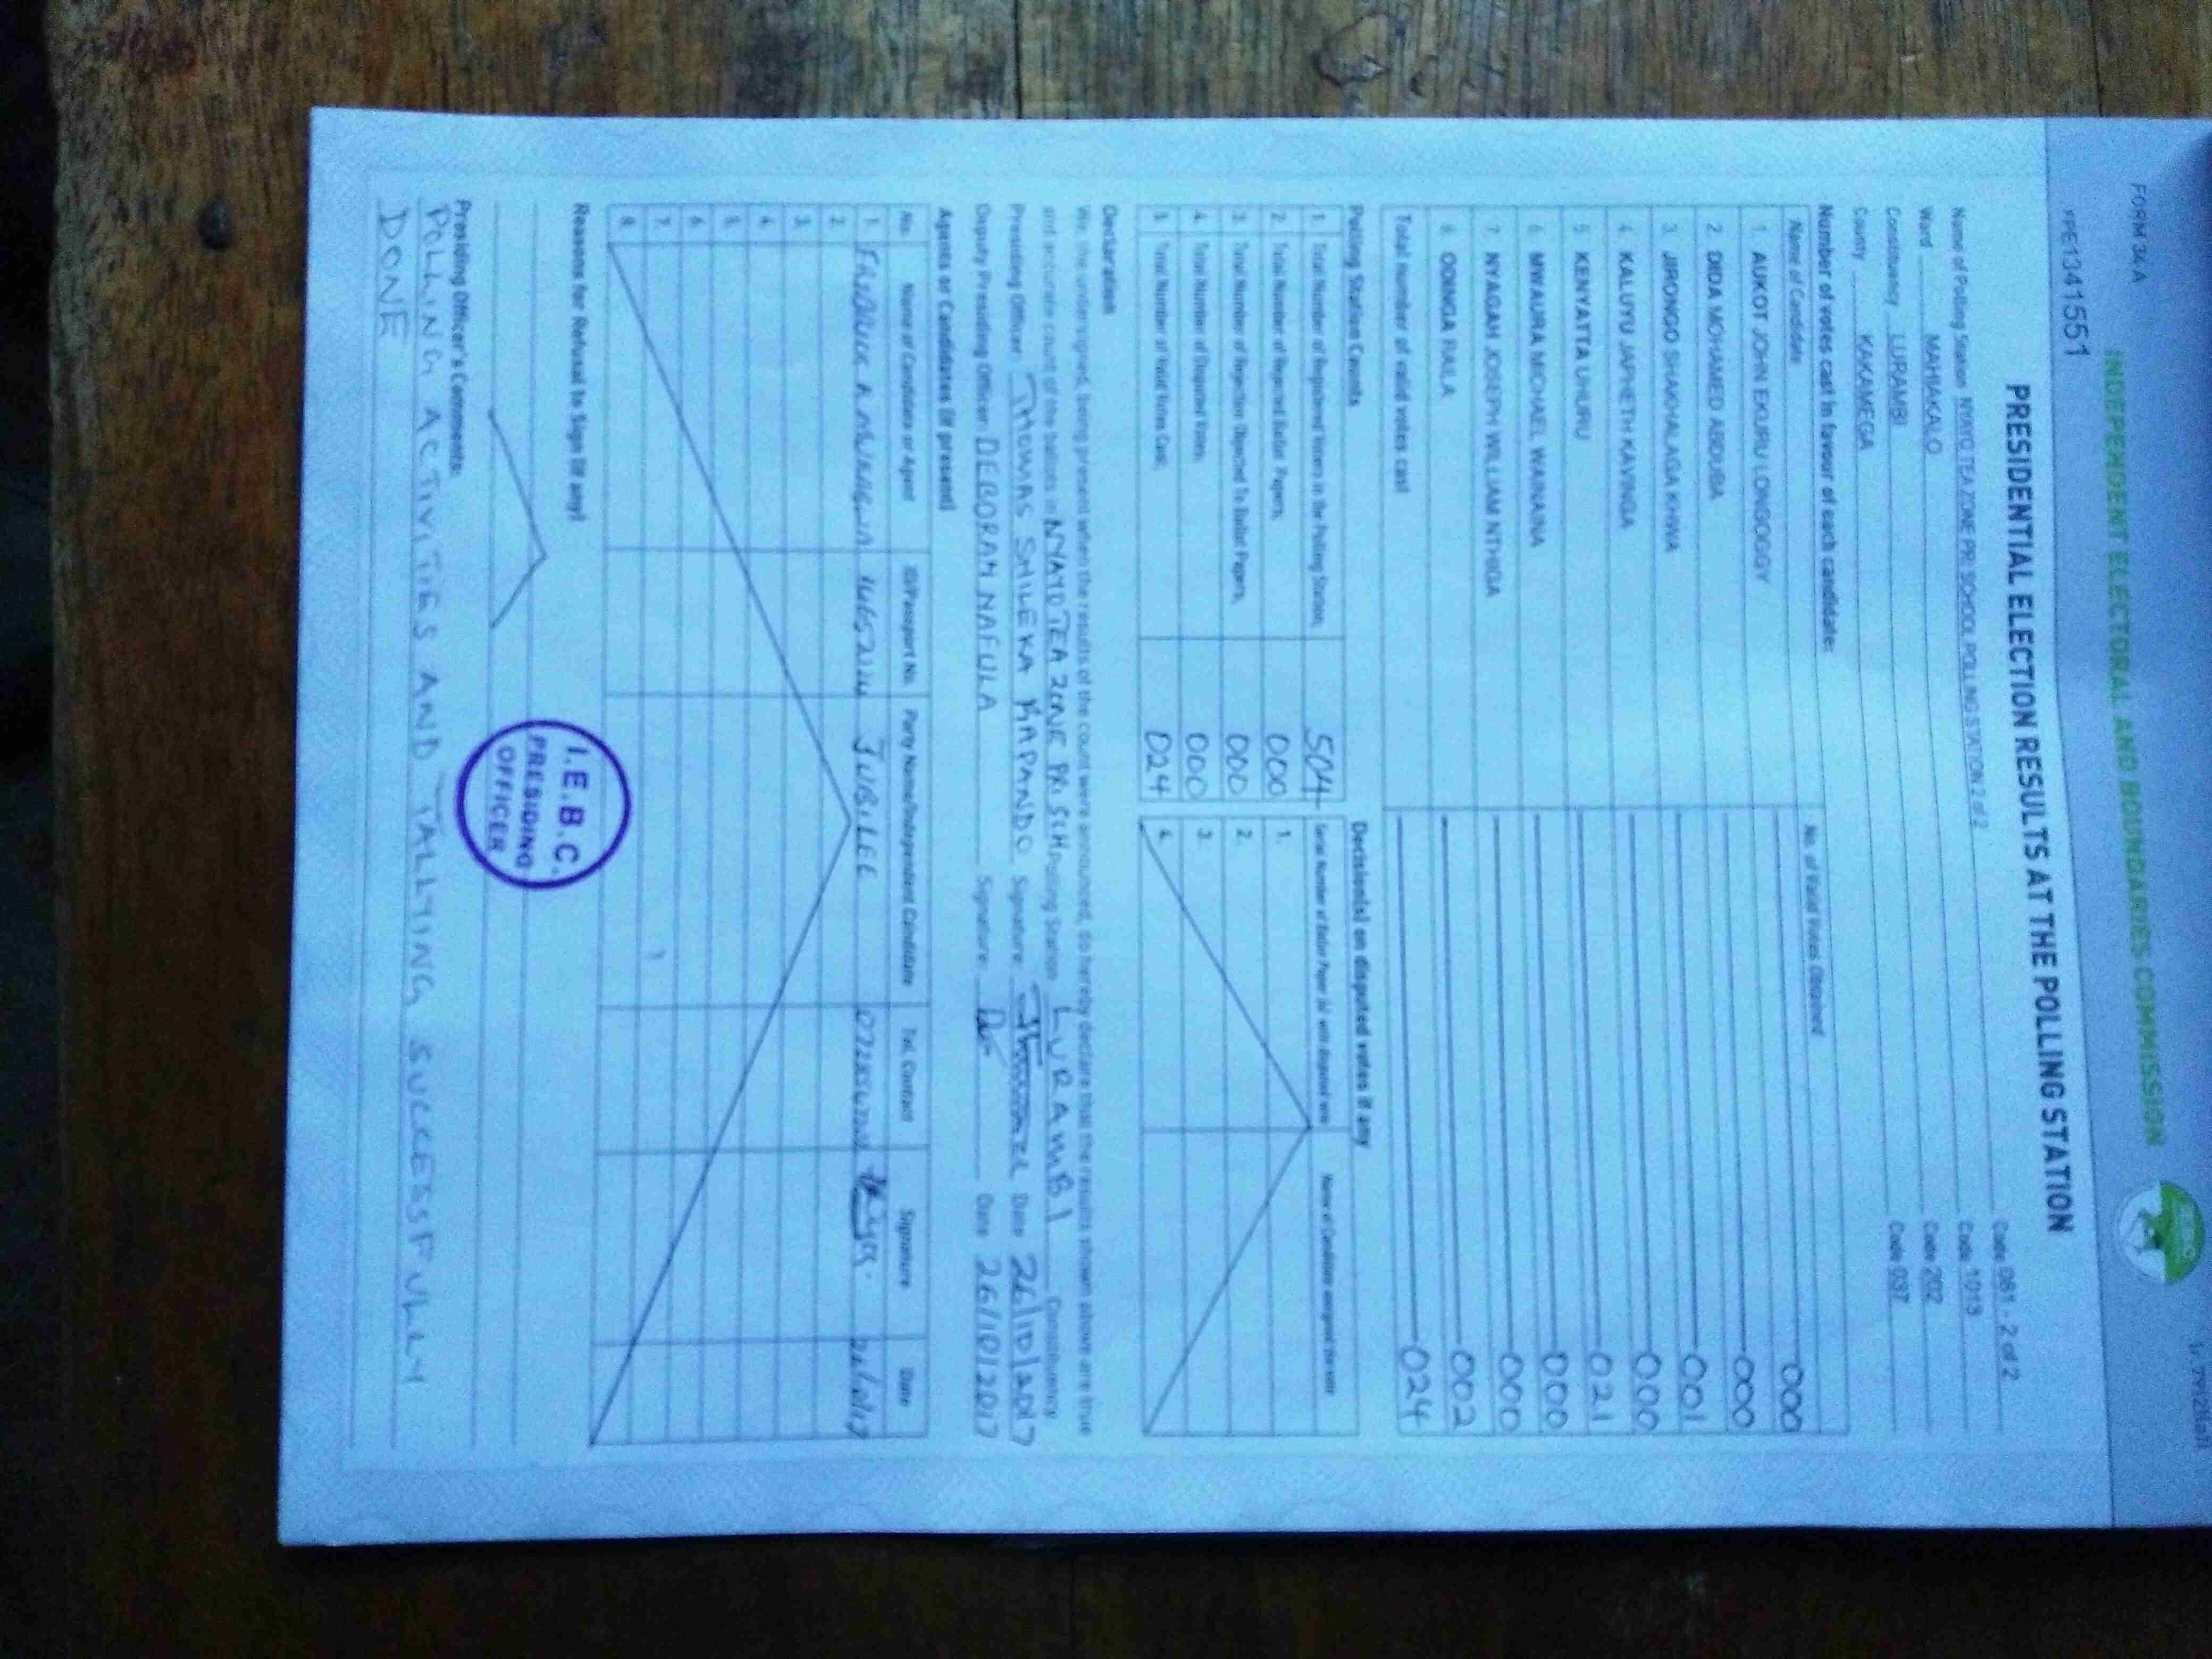 FORM 34 A
INDEPENDENT ELECTORAL AND BOUNDARIES COMMISSION
PRESIDENTIAL ELECTION RESULTS AT THE POLLING STATION
Name of Polling Station NYAYO TEA ZONE PRI SCHOOL POLLING STATION 2 of 2 Code 061 - 2 of 2
Ward MAHIAKALO Code 1013
Constituency LURAMBI Code 202
County KAKAMEGA Code 037
Number of votes cast in favour of each candidate:
Name of Candidate No. of Valid Votes Obtained
1. AUKOT JOHN EKURU LONGOGGY 000
2. DIDA MOHAMED ABDUBA 000
3. JIRONGO SHAKHALAGA KHWA 001
4. KALUYU JAPHETH KAVINGA 000
5. KENYATTA UHURU 021
6. MWAURA MICHAEL WAINAINA 000
7. NYAGAH JOSEPH WILLIAM NTHIGA 000
8. ODINGA RAILA 002
Total number of valid votes cast 024
Polling Station Counts
1. Total Number of Registered Voters in the Polling Station 504
2. Total Number of Rejected Ballot Papers 000
3. Total Number of Rejection Objected To Ballot Papers 000
4. Total Number of Disputed Votes 000
5. Total Number of Valid Votes Cast 024
Decision(s) on disputed votes if any
Serial Number of Ballot Paper (s) with disputed vote Name of Candidate assigned the vote
1.
2.
3.
4.
Declaration
We, the undersigned, being present when the results of the count were announced, do hereby declare that the results shown above are true
and accurate count of the ballots in NYAYO TEA ZONE PRI SCH Polling Station LURAMBI Constituency
Presiding Officer THOMAS SHILEKA Signature Date 26/10/2017
Deputy Presiding Officer DEBORAH NAFULA Signature Date 26/10/2017
Agents or Candidates (if present)
No. Name of Candidate or Agent ID/Passport No. Party Name/Independent Candidate Tel. Contact Signature Date
1. JUBILEE
2.
3.
4.
5.
6.
7.
8.
Reasons for Refusal to Sign (if any)
I.E.B.C.
PRESIDING
OFFICER
Presiding Officer's Comments:
POLLING ACTIVITIES AND TALLYING SUCCESSFULLY
DONE